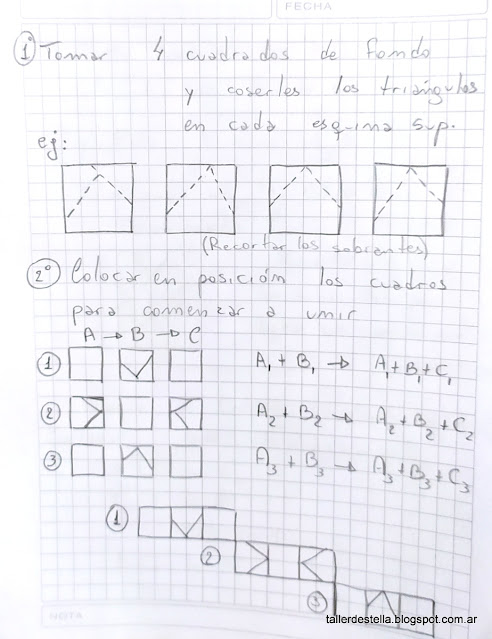 FECHA
1° Tomar 4 cuadrados de fondo
y coserles los triángulos
en cada esquina sup.
ej:
(Recortar los sobrantes)
2° Colocar en posición los cuadros
para comenzar a unir
A → B → C
1 A1 + B1 → A1 + B1 + C1
2 A2 + B2 → A2 + B2 + C2
3 A3 + B3 → A3 + B3 + C3
1
2
3
NOTA
tallerdestella.blogspot.com.ar